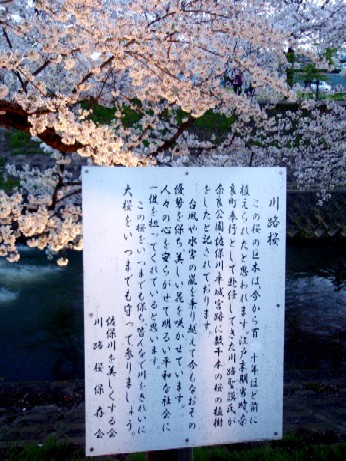 川路桜
この桜の巨木は、今から百 十年ほど前に
植えられたと思われます。江戸末期当時、奈
良町奉行として赴任してきた川路聖謨氏が
奈良公園、佐保川、平城宮跡に数千本の桜の植樹
をしたと記されております。
台風や水害の嵐を乗り越えて今もなおその
優勢を保ち美しい花を咲かせています。
人々の心を安らがせて明るい平和な社会に
一役を担っていると思います。
この桜をいつまでも保ち皆んなで川をきれいに
大桜をいつまでも守って参りましょう。
佐保川を美しくする会
川路桜保存会